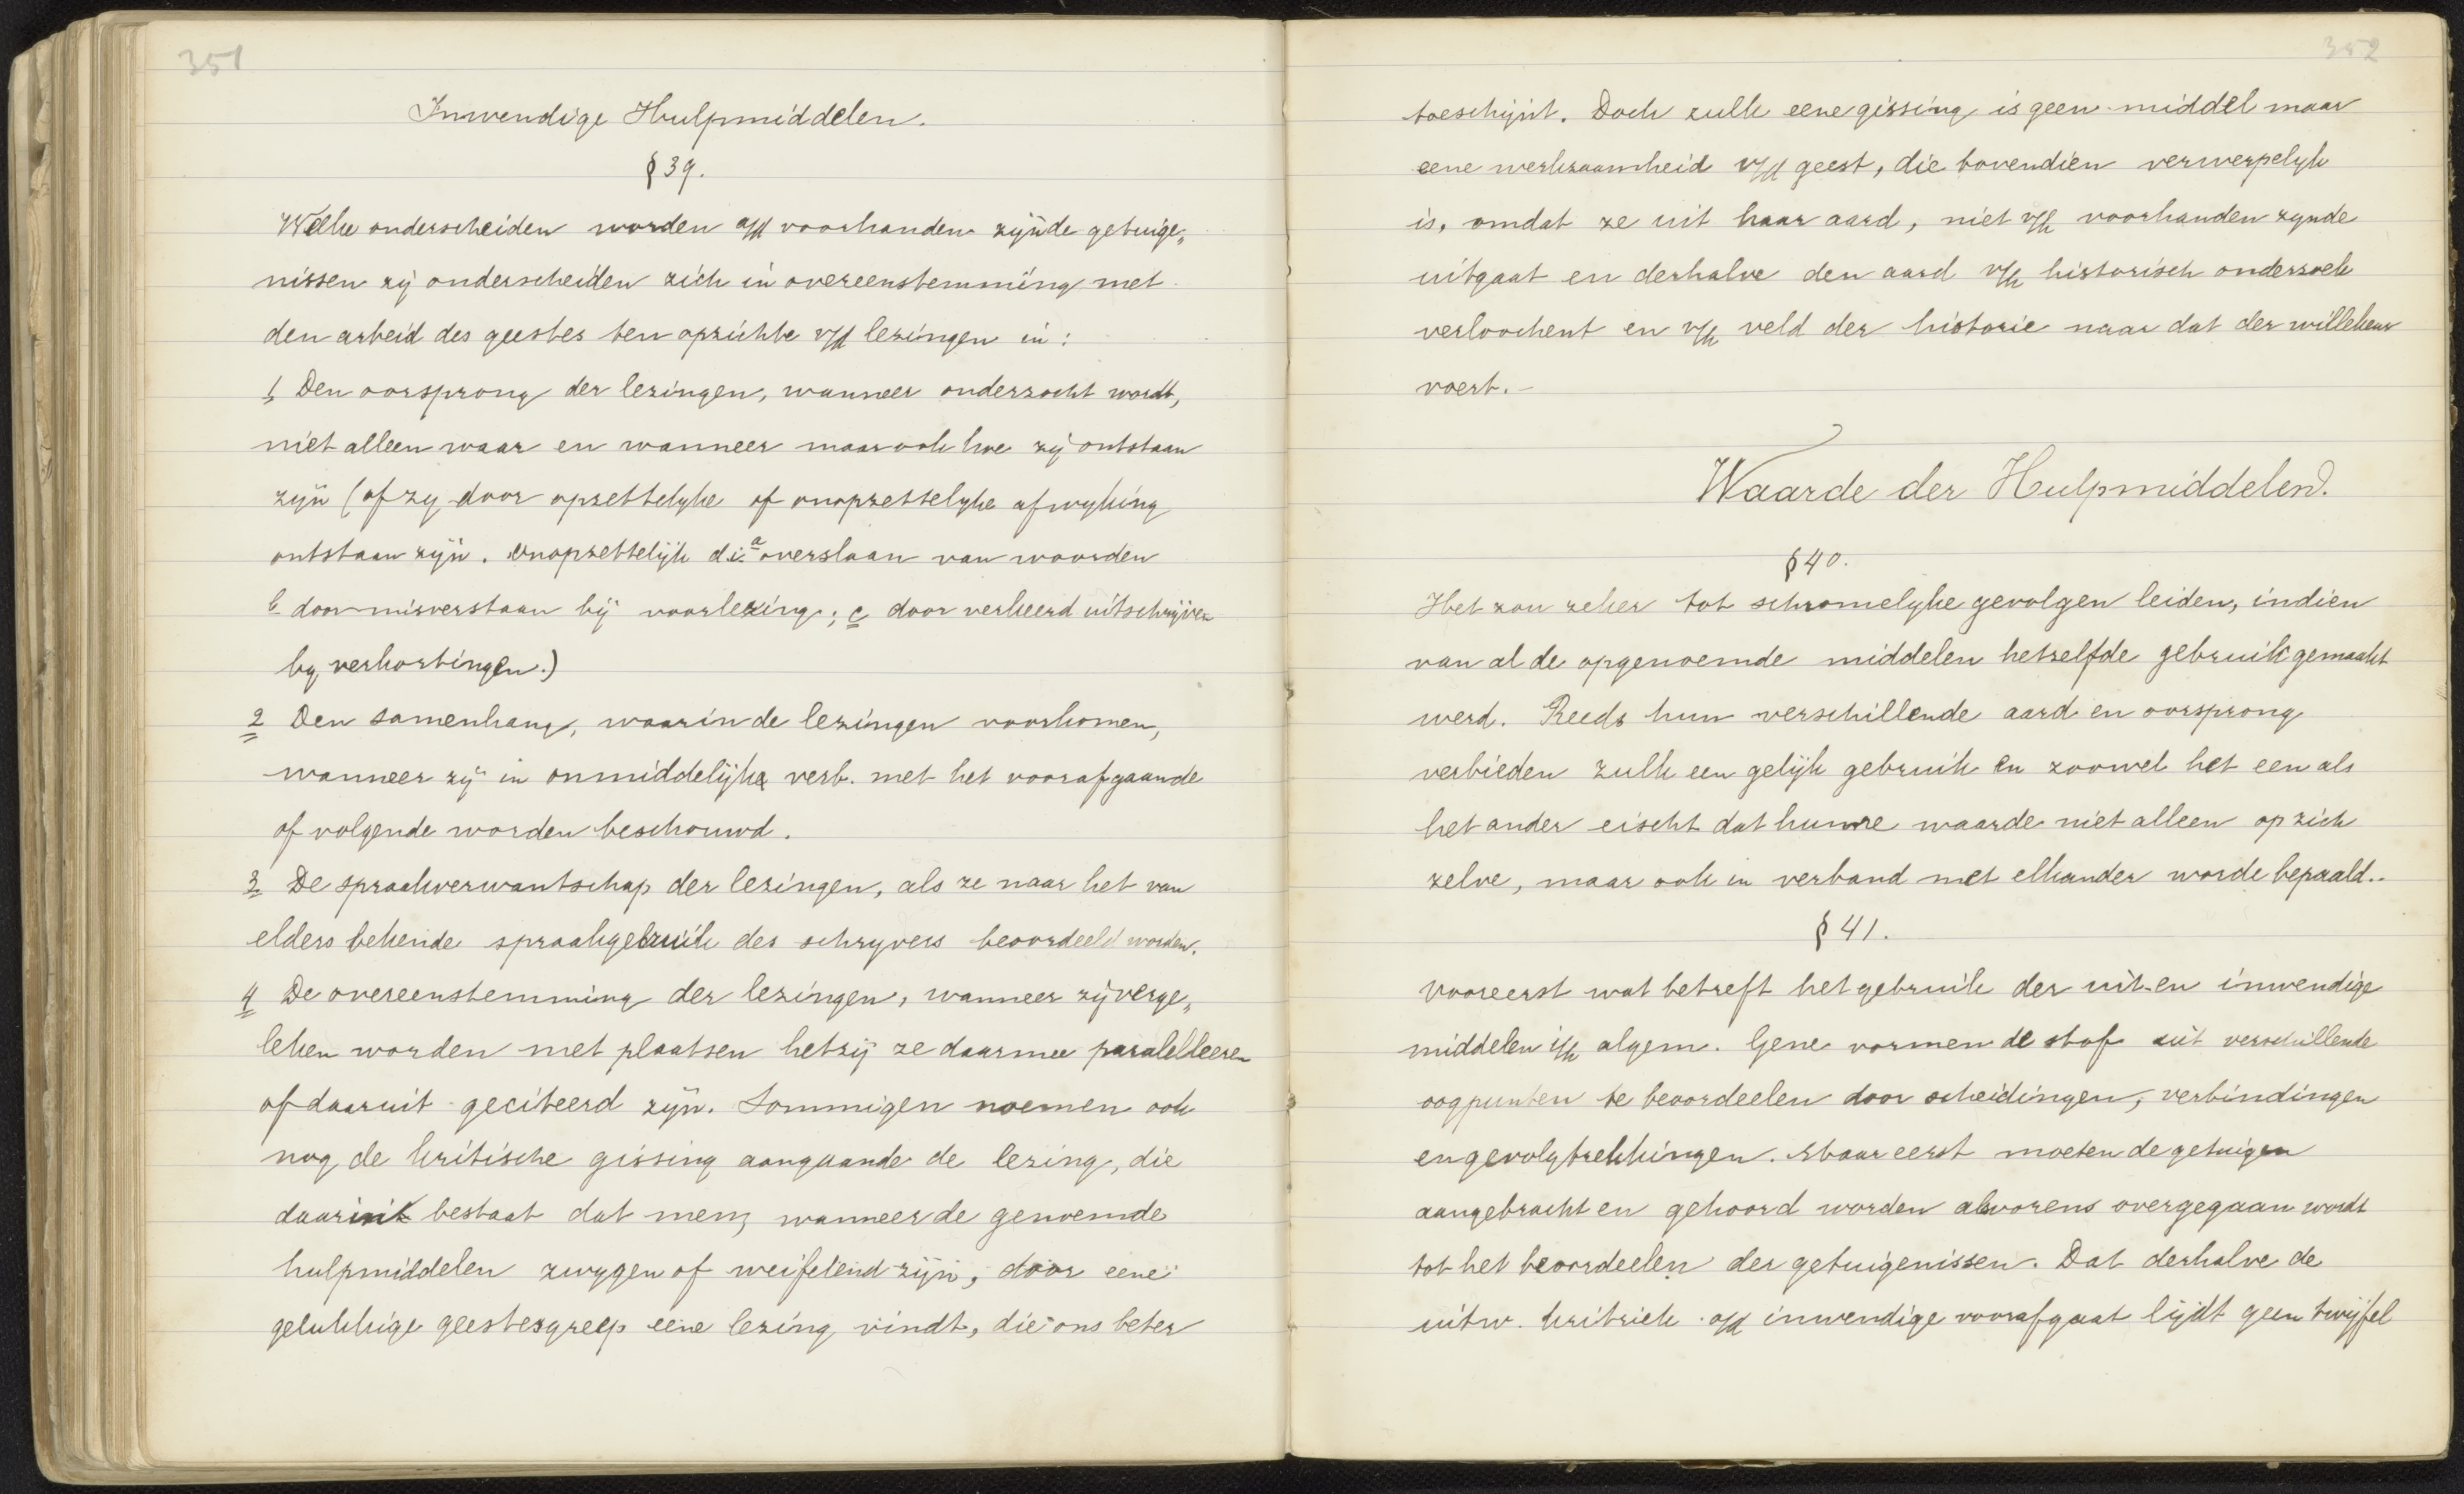 351
Inwendige Hulpmiddelen.
§ 39.
Welke onderscheiden worden a/d voorhanden zijnde getuige„
nissen zij onderscheiden zich in overeenstemming met
den arbeid des geestes ten opzichte v/d lezingen in:
1, Den oorsprong der lezingen, wanneer onderzocht wordt,
niet alleen waar en wanneer maar ook hoe zij ontstaan
zijn (of zy door opzettelyke of onopzettelyke afwyking
ontstaan zijn. Onopzettelijk d.i. a overslaan van woorden
b door misverstaan bij voorlezing; c door verkeerd uitschrijven
by verkortingen.)
2 Den samenhang, waarin de lezingen voorkomen,
wanneer zij in onmiddelijke verb. met het voorafgaande
of volgende worden beschouwd.
3 De spraakverwantschap der lezingen, als ze naar het van
elders bekende spraakgebruik des schryvers beoordeeld worden.
4 De overeenstemming der lezingen, wanneer zij verge„
leken worden met plaatsen hetzij ze daarmee paralelleeren
of daaruit geciteerd zijn. Sommigen noemen ook
nog de kritische gissing aangaande de lezing, die
daarin bestaat dat men, wanneer de genoemde
hulpmiddelen zwygen of weifelend zijn, door eene
gelukkige geestesgreep eene lezing vindt, die ons beter
352
toeschijnt. Doch zulk eene gissing is geen middel maar
eene werkzaamheid v/d geest, die bovendien verwerpelyk
is, omdat ze uit haar aard, niet v/h voorhanden zynde
uitgaat en derhalve den aard v/h historisch onderzoek
verloochent en v/h veld der historie naar dat der willekeur
voert.-
Waarde der Hulpmiddelen.
§ 40.
Het zou zeker tot schromelyke gevolgen leiden, indien
van al de opgenoemde middelen hetzelfde gebruik gemaakt
werd. Reeds hun verschillende aard en oorsprong
verbieden zulk een gelijk gebruik en zoowel het een als
het ander eischt dat hunne waarde niet alleen op zich
zelve, maar ook in verband met elkander worde bepaald..
§ 41.
Vooreerst wat betreft het gebruik der uit- en inwendige
middelen i/h algem. Gene vormen de stof uit verschillende
oogpunten te beoordeelen door scheidingen, verbindingen
en gevolgtrekkingen. Maar eerst moeten de getuigen
aangebracht en gehoord worden alvorens overgegaan wordt
tot het beoordeelen der getuigenissen. Dat derhalve de
uitw. kritiek a/d inwendige voorafgaat lijdt geen twijfel